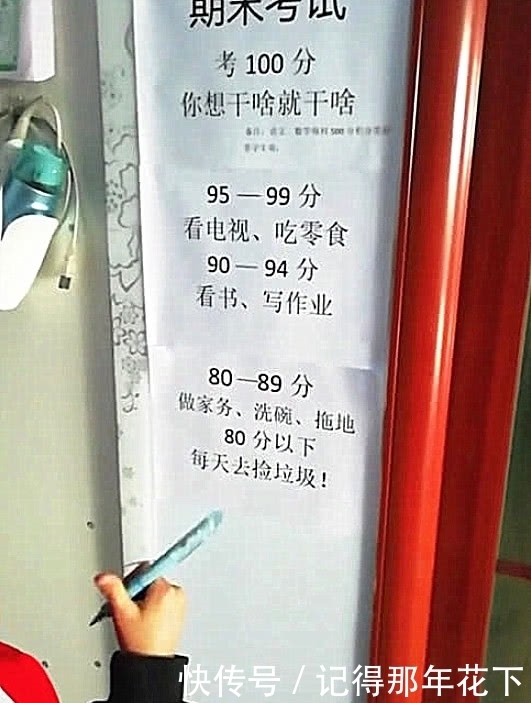 期末考试
考 100 分
你想干啥就干啥
备注：语文 数学
95 — 99 分
看电视、吃零食
90 — 94 分
看书、写作业
80 —89 分
做家务、洗碗、拖地
80 分以下
每天去捡垃圾！
快传号 / 记得那年花下